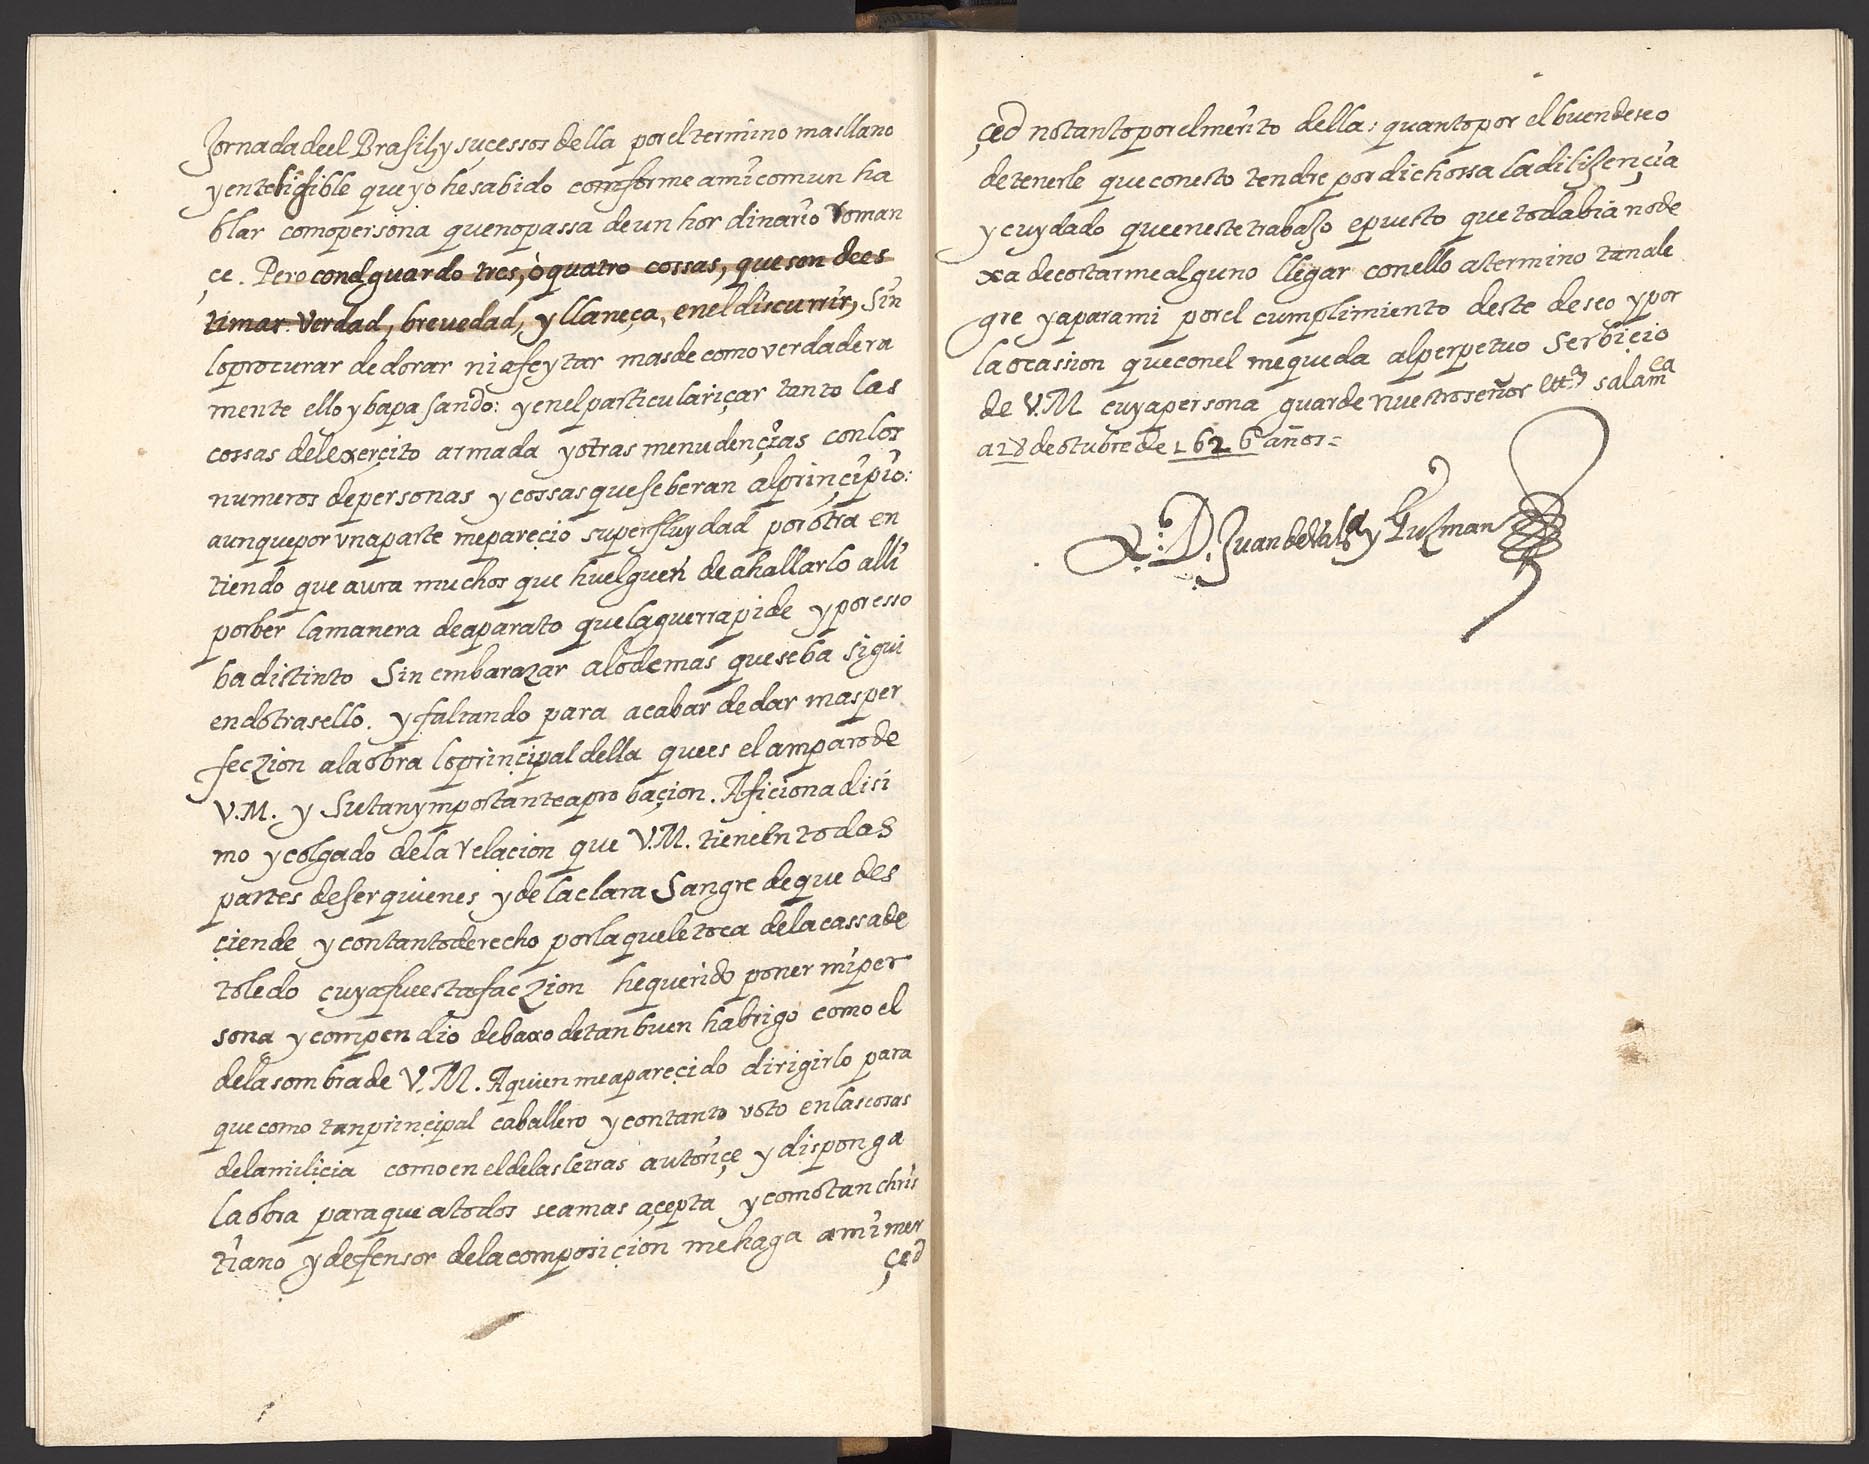 Jornada deel Brasil, y suçessos della por el termino mas llano
y enteligible que yo he sabido comforme a mi comun ha
blar como persona que no passa de un hordinario Roman
çe. Pero con el guardo tres, ò quatro cossas, que son de es
timar. Verdad, brevedad, y llaneça, en el discurrir, Sin
lo procurar de dorar ni afeytar mas de como verdadera
mente ello yba pasando: y en el particulariçar tanto las
cossas del exerçito armada y otras menudençias con los
numeros de personas y cossas que se beran al prinçipio:
aunque por vna parte me pareçio superfluydad por otra en
tiendo que aura muchos que huelguen de a hallarlo alli
por ber la manera de aparato que la guerra pide y por esso
ba distinto Sin embarazar a lo demas que se ba sigui
endo tras ello. y faltando para acabar de dar mas per
feczion a la obra lo prinçipal della que es el amparo de
V.M. y Su tan ymportante aprobaçion. Aficionadisi
mo y colgado de la Relacion que V.M. tiene en todas
partes de ser quien es y de la clara Sangre de que des
çiende y con tanto derecho por la que le toca de la cassa de
toledo cuya fue esta faczion he querido poner mi per
sona y compendio debaxo de tan buen habrigo como el
de la sombra de V.M. A quien me a pareçido dirigirlo para
que como tan prinçipal caballero y con tanto voto en las cosas
de la miliçia como en el de las letras autoriçe y disponga
la obra para que a todos sea mas açepta y como tan chris
tiano y defensor de la composiçion me haga a mi mer
çed
çed no tanto por el merito della: quanto por el buen deseo
de tenerle que con esto tendre por dichossa la dilizençia
y cuydado que en este trabajo e puesto que todabia no de
xa de costarme alguno llegar con ello a termino tan ale
gre ya para mi por el cumplimiento deste deseo y por
la ocasion que con el me queda al perpetuo Serbiçio
de V.M cuya persona guarde nuestro señor ettª salamca
a 28 de otubre de 1626 años=
D. Juan de Valª y Guzman